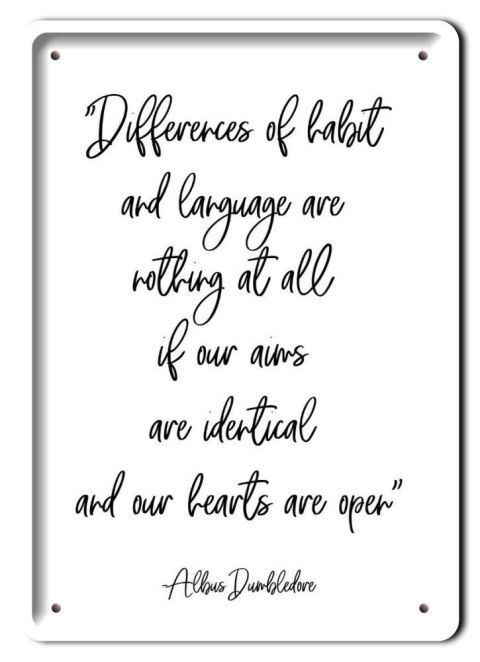 "Differences of habit
and language are
nothing at all
if our aims
are identical
and our hearts are open"
-Albus Dumbledore